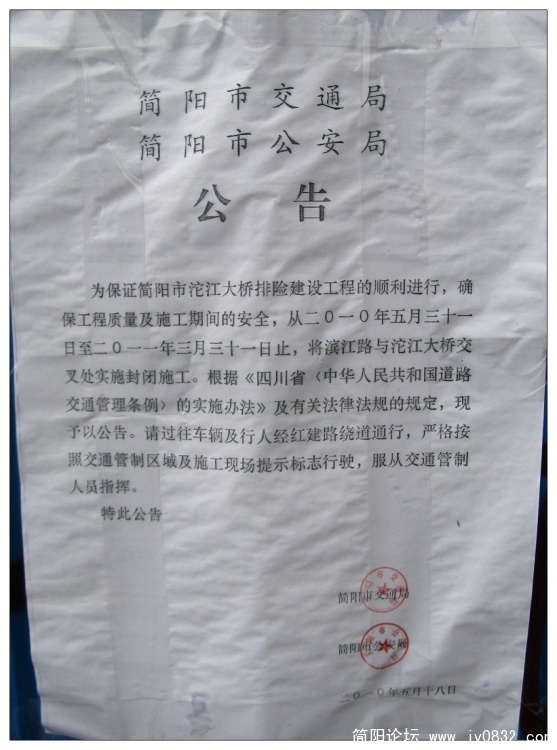 简阳市交通局
简阳市公安局
公告
为保证简阳市沱江大桥排险建设工程的顺利进行，确
保工程质量及施工期间的安全，从二〇一〇年五月三十一
日至二〇一一年三月三十一日止，将滨江路与沱江大桥交
叉处实施封闭施工。根据《四川省〈中华人民共和国道路
交通管理条例〉的实施办法》及有关法律法规的规定，现
予以公告。请过往车辆及行人经红建路绕道通行，严格按
照交通管制区域及施工现场提示标志行驶，服从交通管制
人员指挥。
特此公告
简阳市交通局
简阳市公安局
二〇一〇年五月十八日
简阳论坛 www.jy0832.com